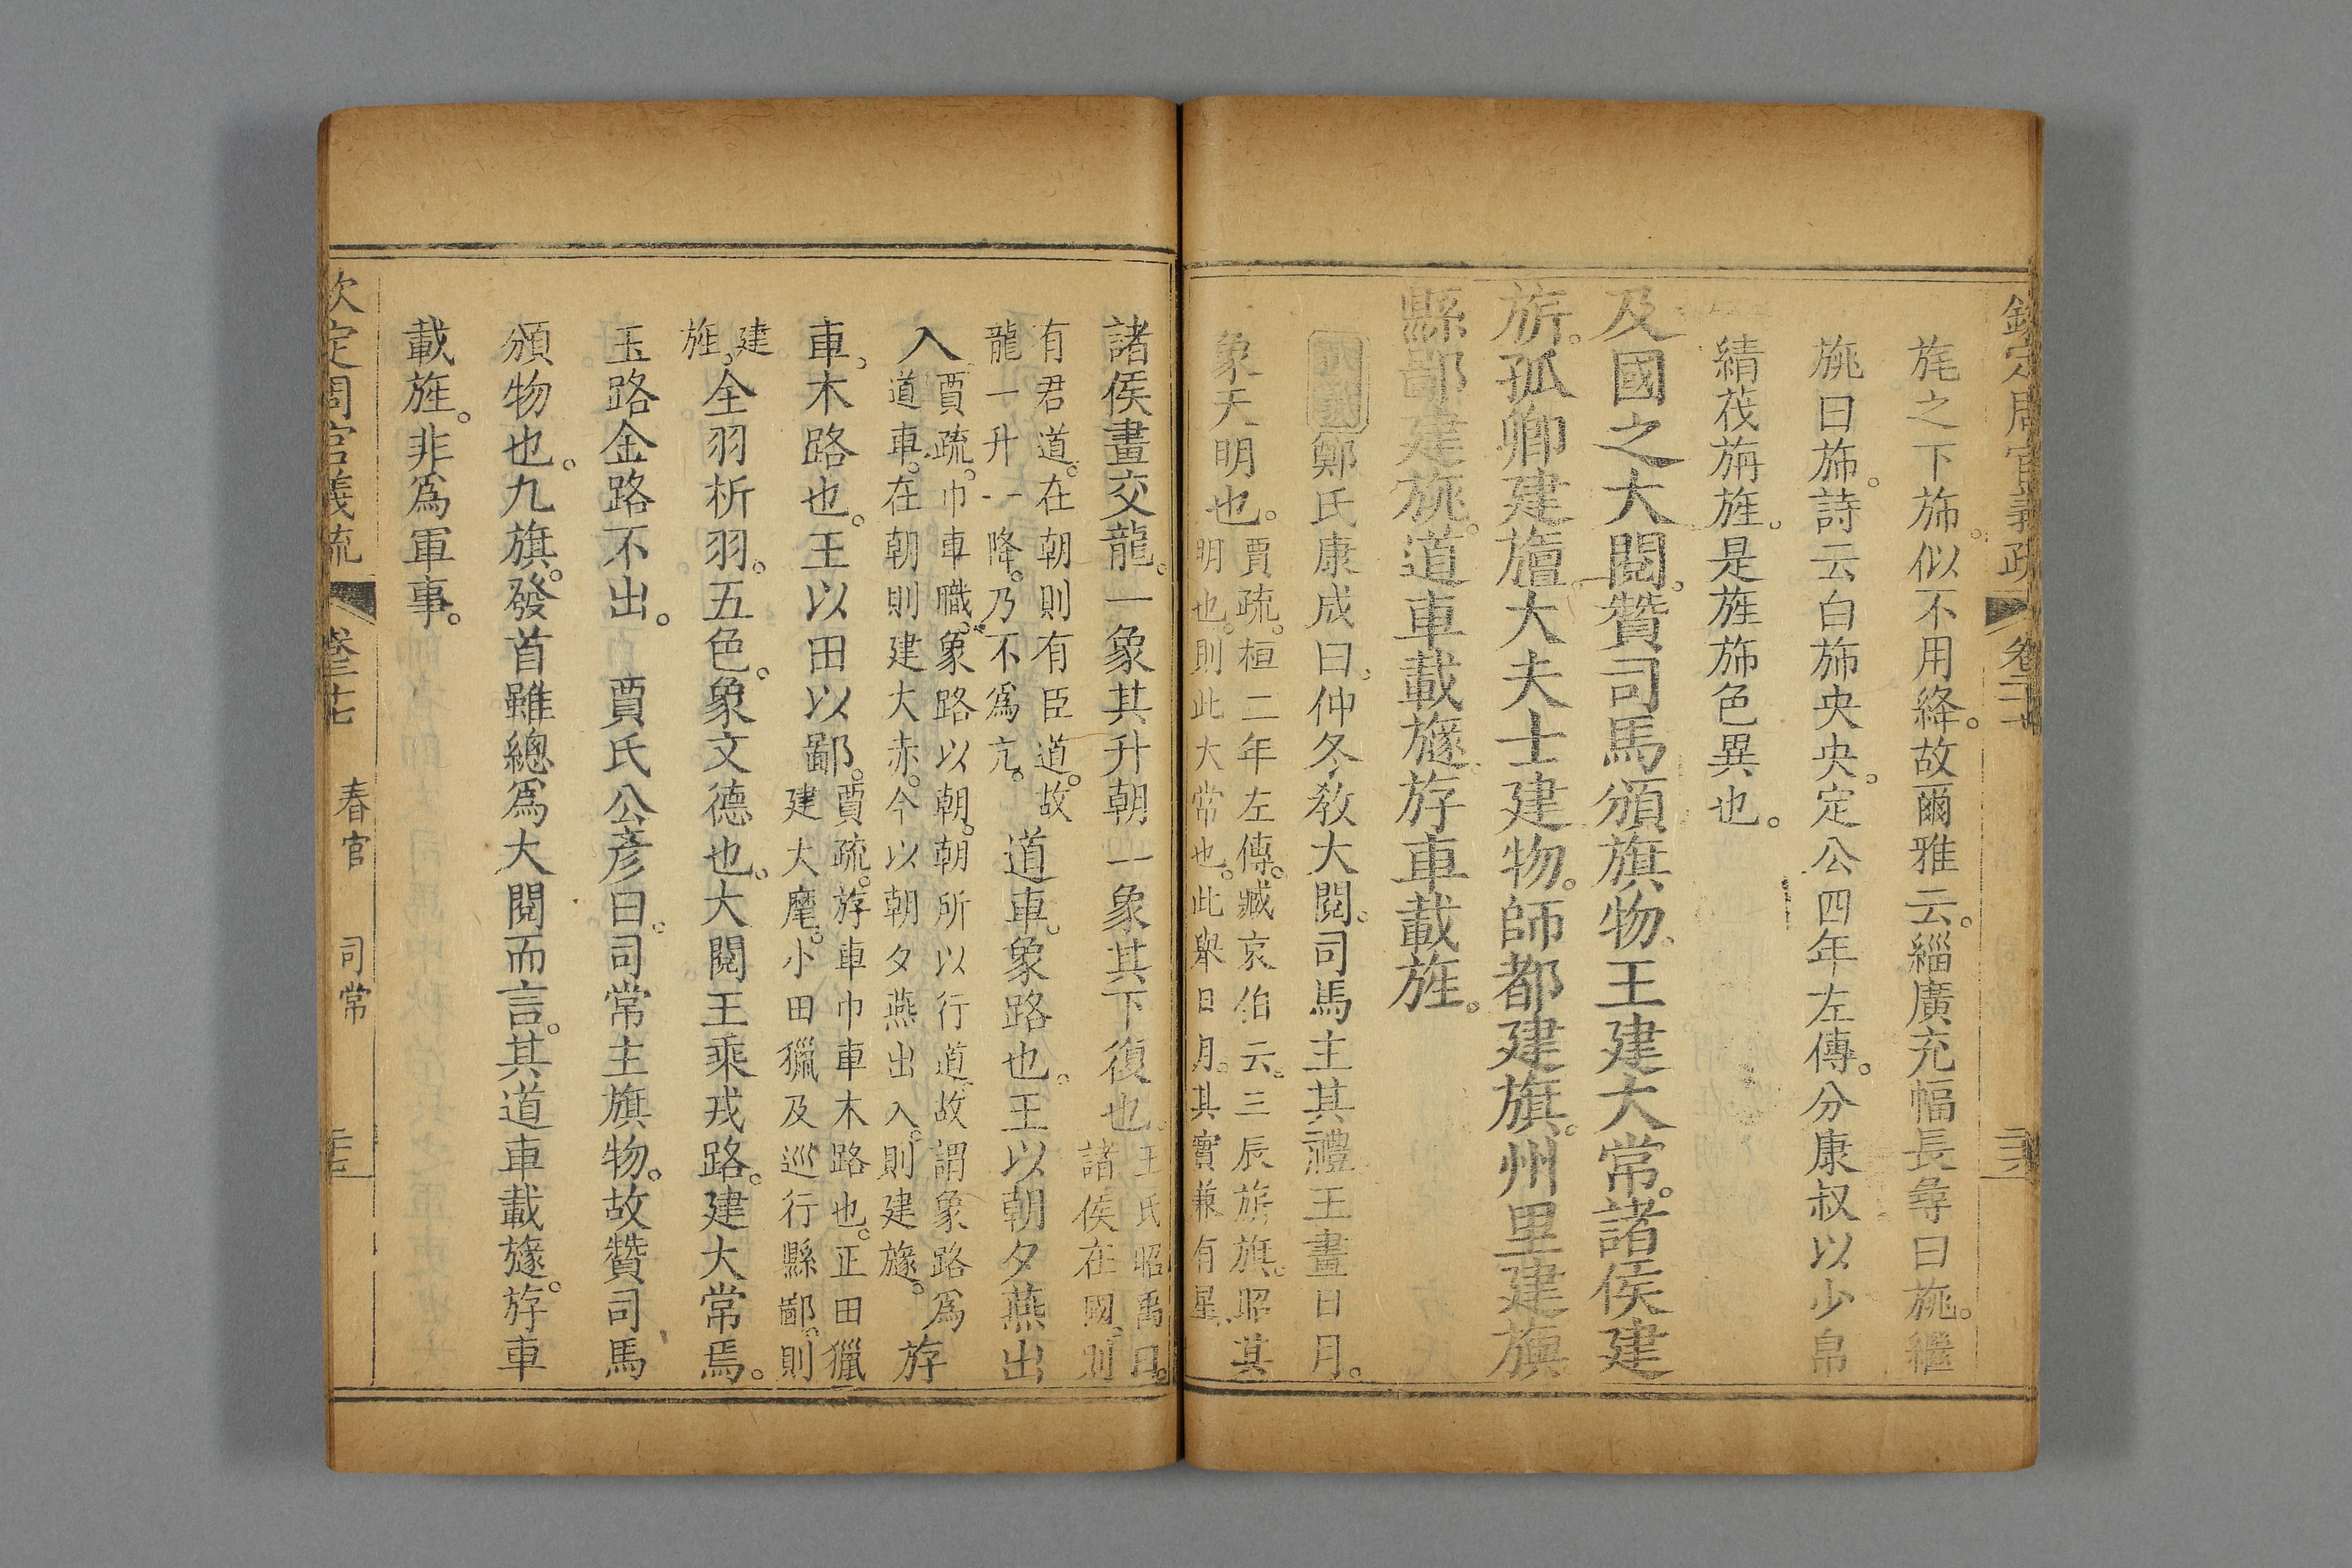 欽定周官義疏 卷二十七
旄之下旆。似不用絳。故爾雅云。緇廣充幅長尋曰旐。繼
旐曰旆。詩云白旆央央。定公四年左傳。分康叔以少帛
綪茷旃旌。是旌旆色異也。
及國之大閱。贊司馬頒旗物。王建大常。諸侯建
旂。孤卿建旜。大夫士建物。師都建旗。州里建旟
縣鄙建旐。道車載旞。斿車載旌。
鄭氏康成曰。仲冬教大閱。司馬主其禮王畫日月。
象天明也。賈疏。桓二年左傳。臧哀伯云。三辰旂旗。昭其
明也。則此大常也。此舉日月。其實兼有星。
諸侯畫交龍。一象其升朝一象其下復也。王氏昭禹曰。
諸侯在國。則
有君道。在朝則有臣道。故
龍一升一降。乃不爲亢。道車。象路也。王以朝夕燕出
入賈疏。巾車職。象路以朝。朝所以行道。故謂象路爲
道車。在朝則建大赤。今以朝夕燕出入。則建旞。斿
車。木路也。王以田以鄙。賈疏。斿車巾車木路也。正田獵
建大麾。小田獵及巡行縣鄙。則
建
旌。全羽析羽。五色。象文德也。大閱王乘戎路。建大常焉。
玉路金路不出。 賈氏公彥曰。司常主旗物。故贊司馬
頒物也。九旗。發首雖總爲大閱而言。其道車載旞。斿車
載旌。非爲軍事。
欽定周官義疏 卷二十七 春官 司常